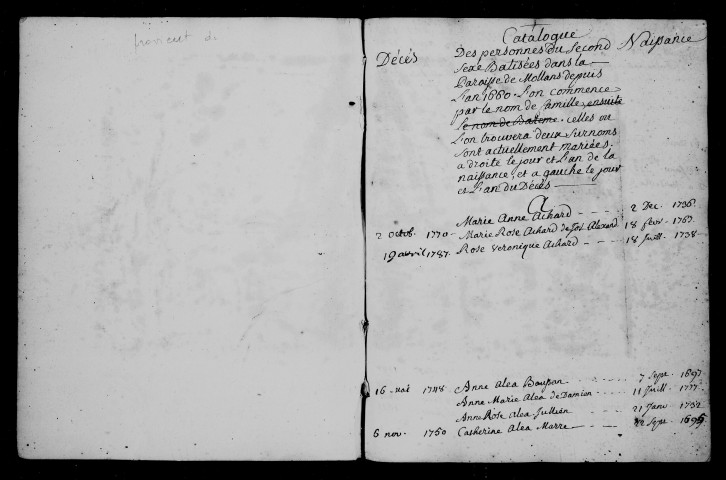 provient de
Catalogue
Décés
Des personnes du Second
Naissance
Sexe Batisées dans la
Paroisse de Mollans depuis
L'an 1660. L'on commence
par le nom de famille, ensuite
le nom de Bateme. celles ou
L'on trouvera deux Surnoms
sont actuellement mariées.
a droite le jour et L'an de la
naissance, et a gauche le jour
et L'an du Décés
A
Marie Anne Achard 2 Dec. 1736.
2 octob. 1770 Marie Rose Achard de Jos. Alexand 18 fevr. 1763.
19 avril 1787. Rose Veronique Achard 18 Juill. 1738
7 Sept. 1697.
16 mai 1748 Anne Alea Boupan
Anne Marie Alea de Damien 11 Juill. 1777.
Anne Rose Alea Jullian 21 Janv. 1732
6 nov. 1760 Catherine Alea Marre Sept. 1695